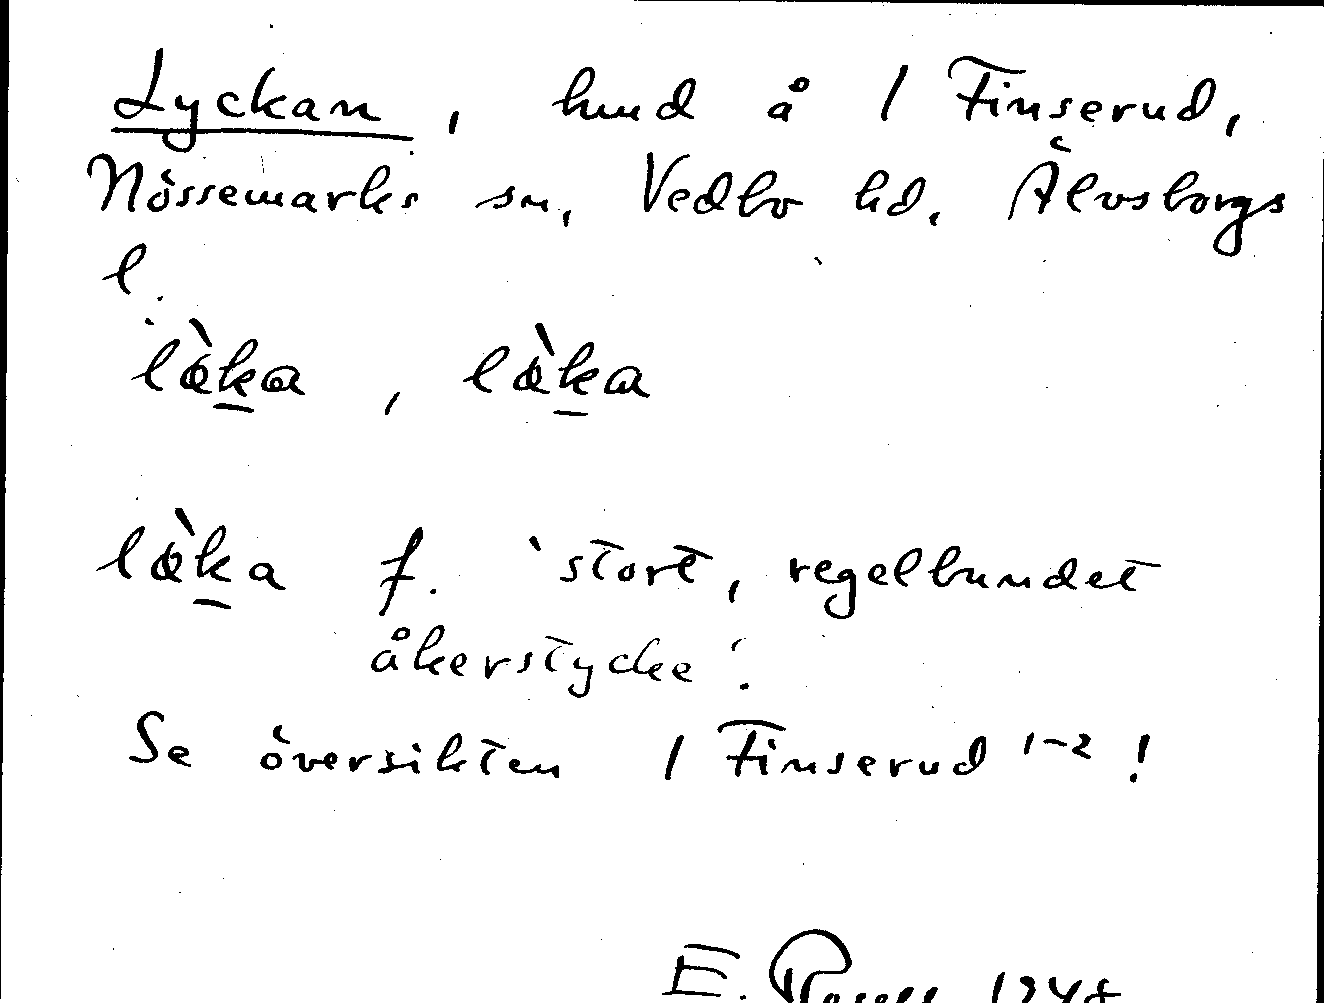 Lyckan, hmd å 1 Finserud,
Nössemarks sn, Vedbo hd. Älvsborgs
l.
lø̀ka, lø̀ka
lø̀ka f. `stort, regelbundet
åkerstycke´.
Se översikten 1 Finserud 1-2!
E.